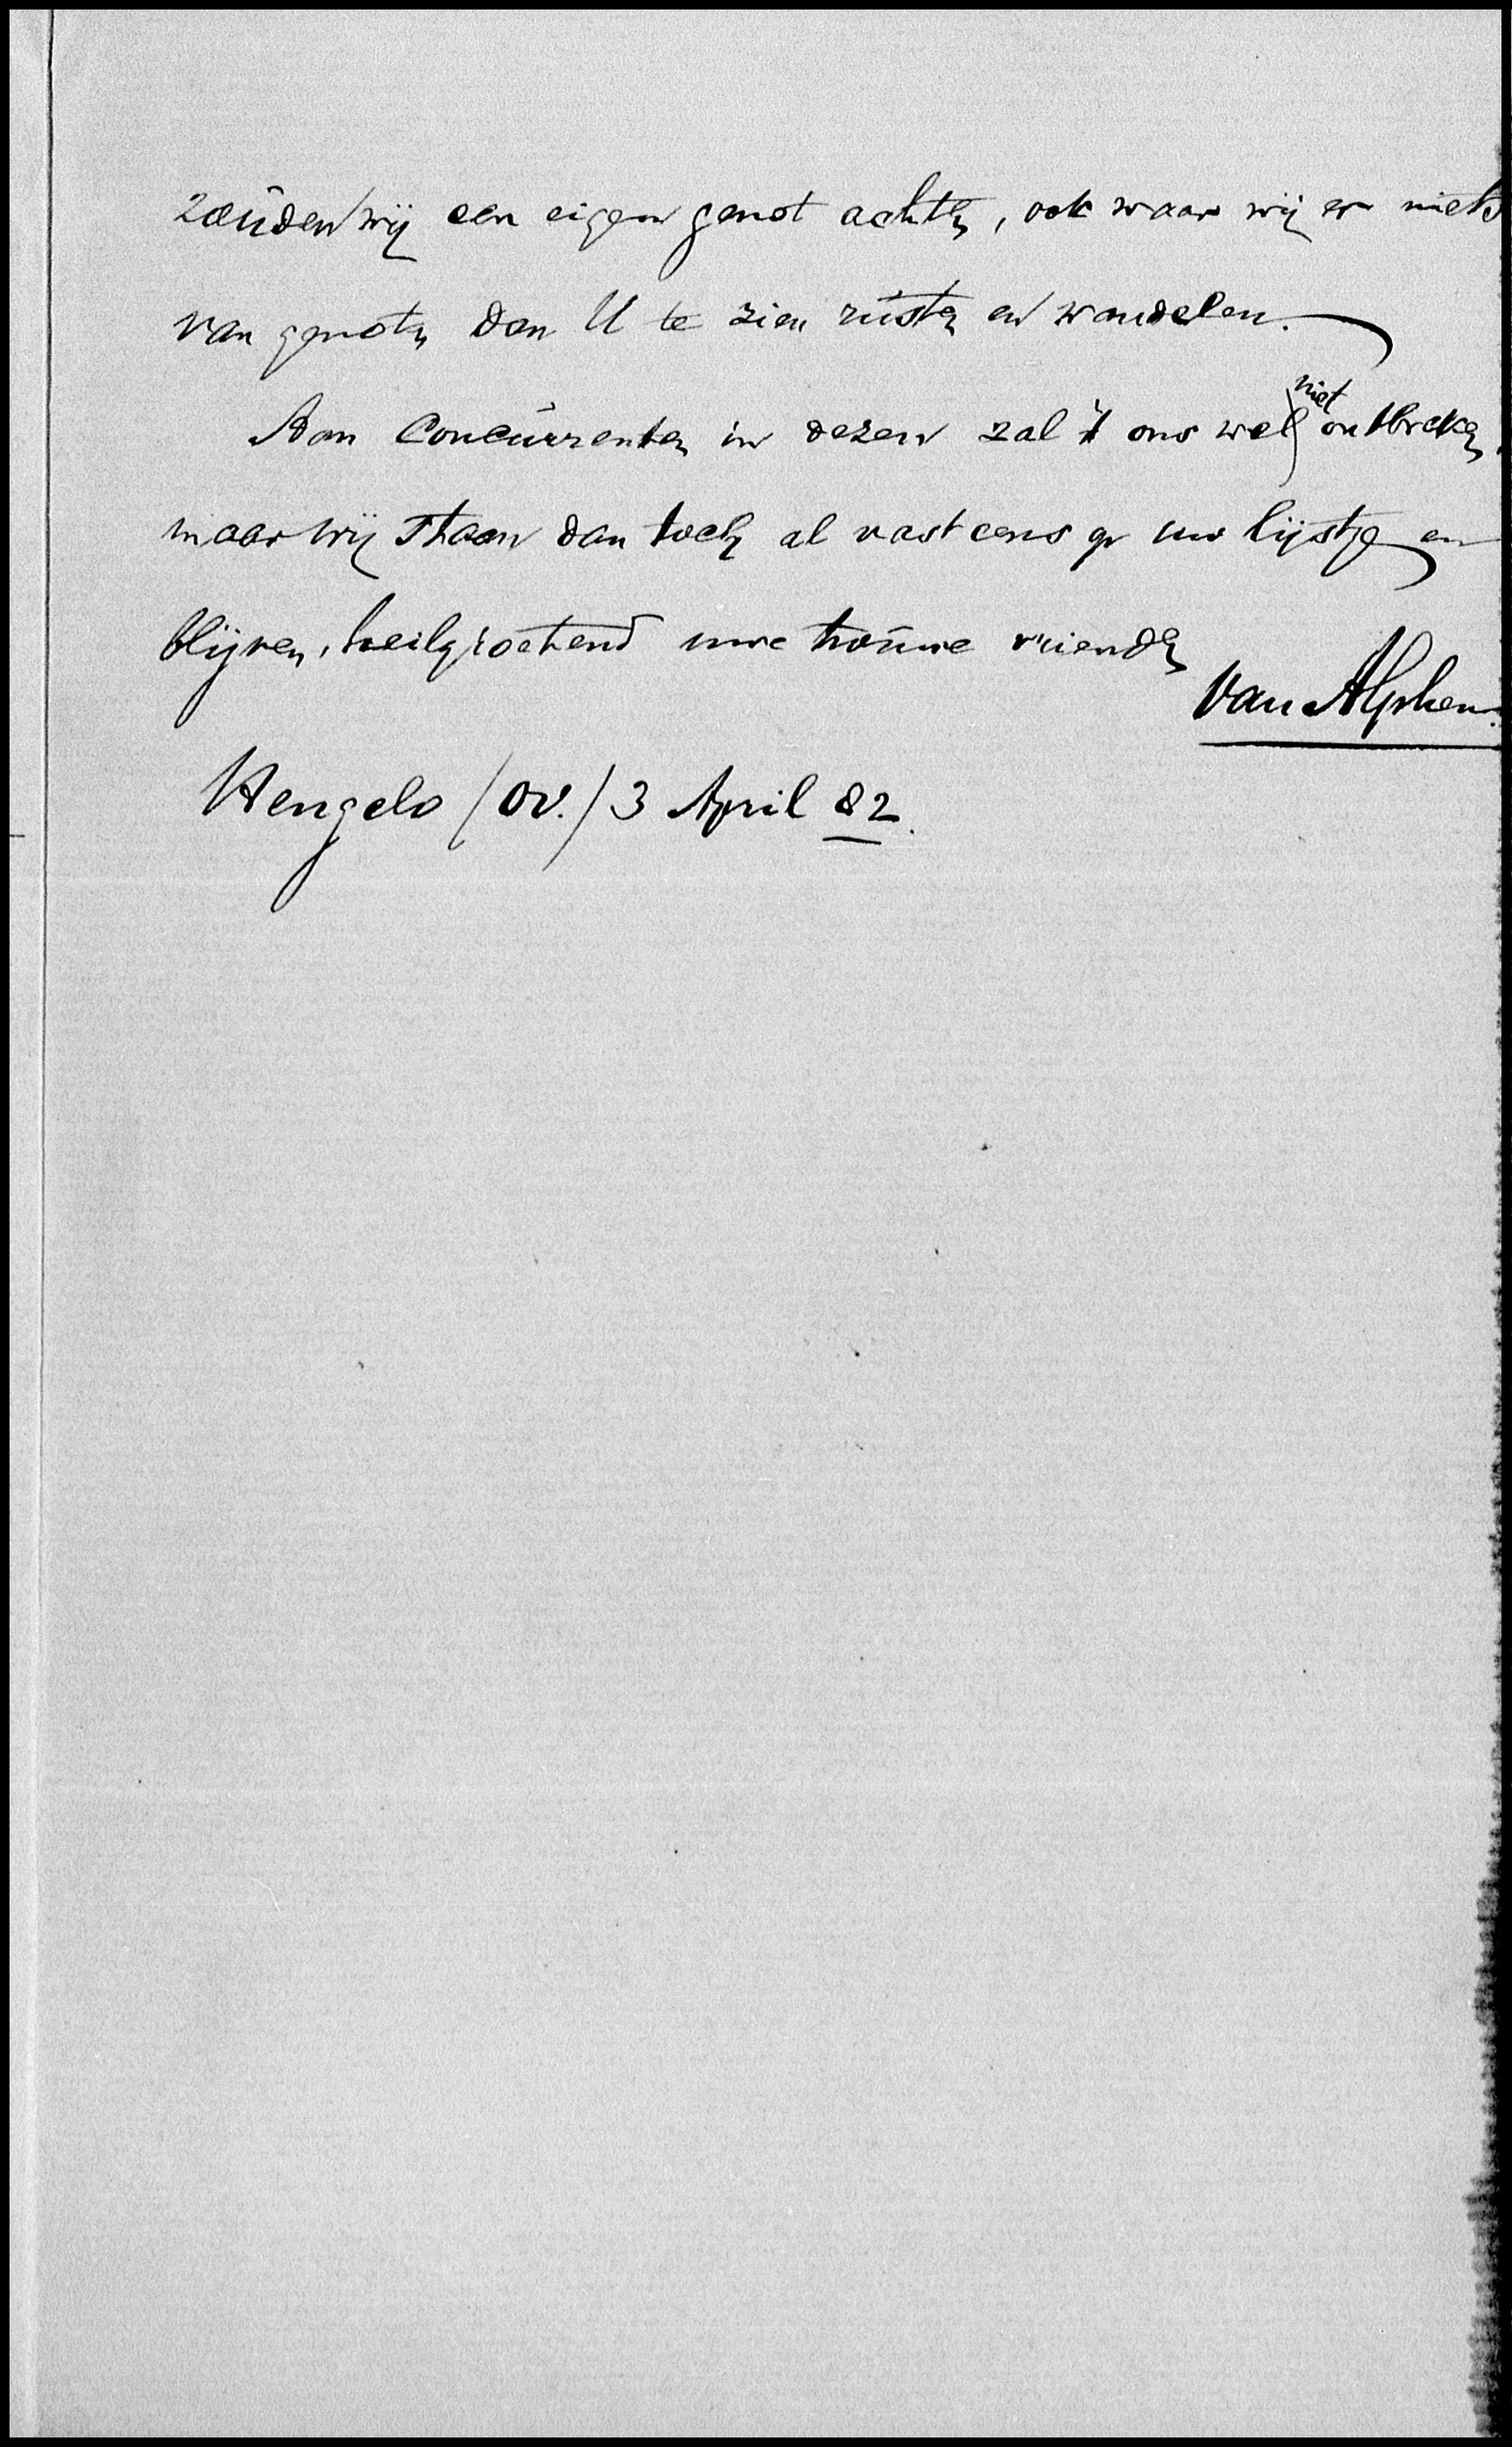 zouden wij een eigen genot achten, ook waar wij er niets
van genoten dan U te zien rusten en wandelen.
Aan Concurrenten in dezen zal 't ons wel niet ontbreken,
maar wij staan dan toch al vast eens op uw lijstje en
blijven, heilgroetend uwe trouwe vrienden
Van Alphen.
Hengelo (Ov.) 3 April 82.